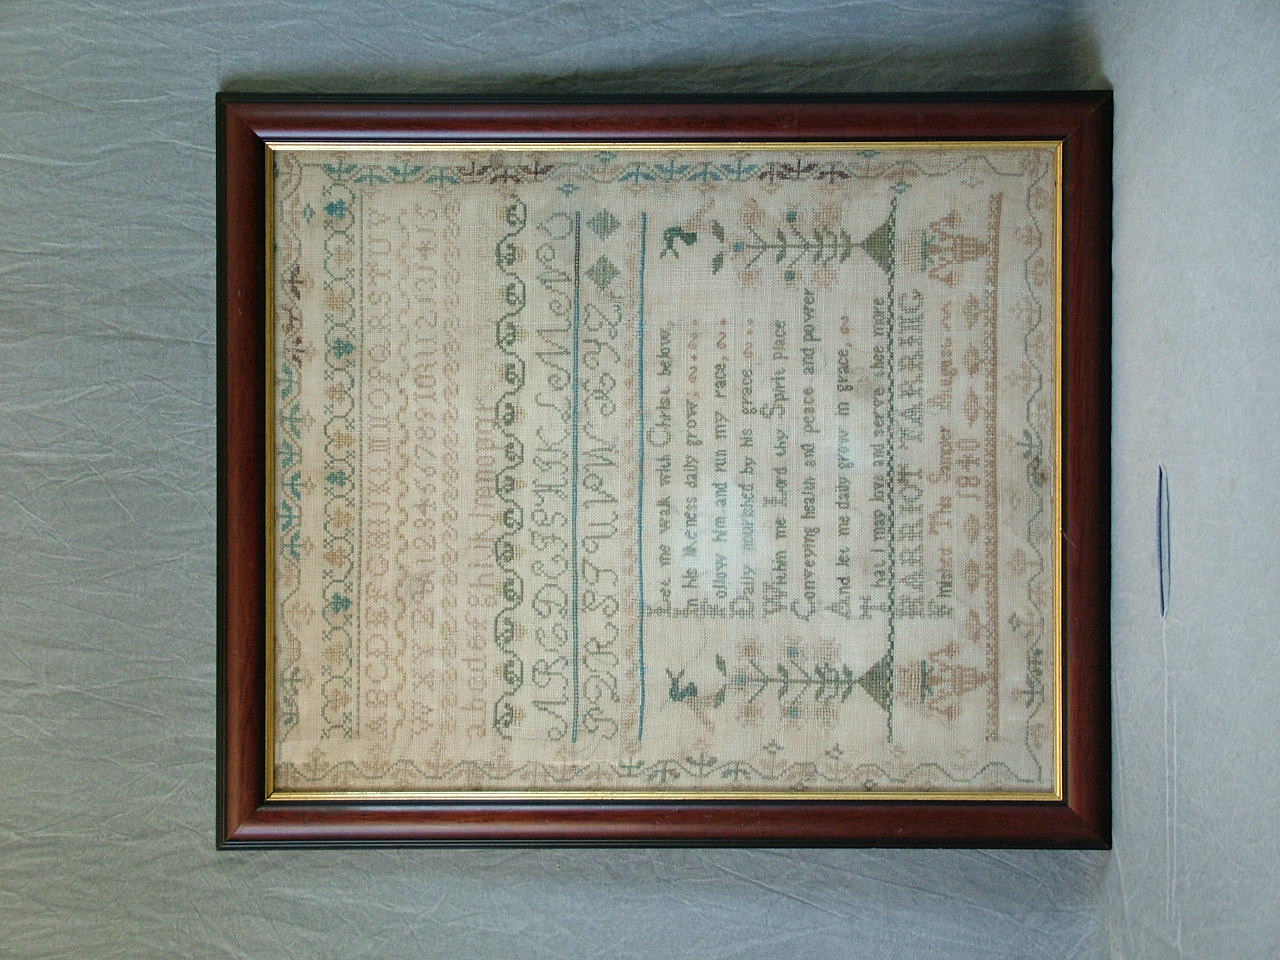 ABCDEFGHIJKLMNOPQRSTUV
WXYZ
abcdefghijklmnopqr
ABCDEFGHIKLMNO
PQRSTUVWXYZ
Let me walk with Christ below,
In his likeness daily grow,
Follow him and run my race,
Daily nourished by his grace
Within me Lord thy Spirit place
Conveying health and peace and power
And let me daily grow in grace,
That I may love and serve thee more
HARRIOT FARRING
Finisted This Sampler August
1840